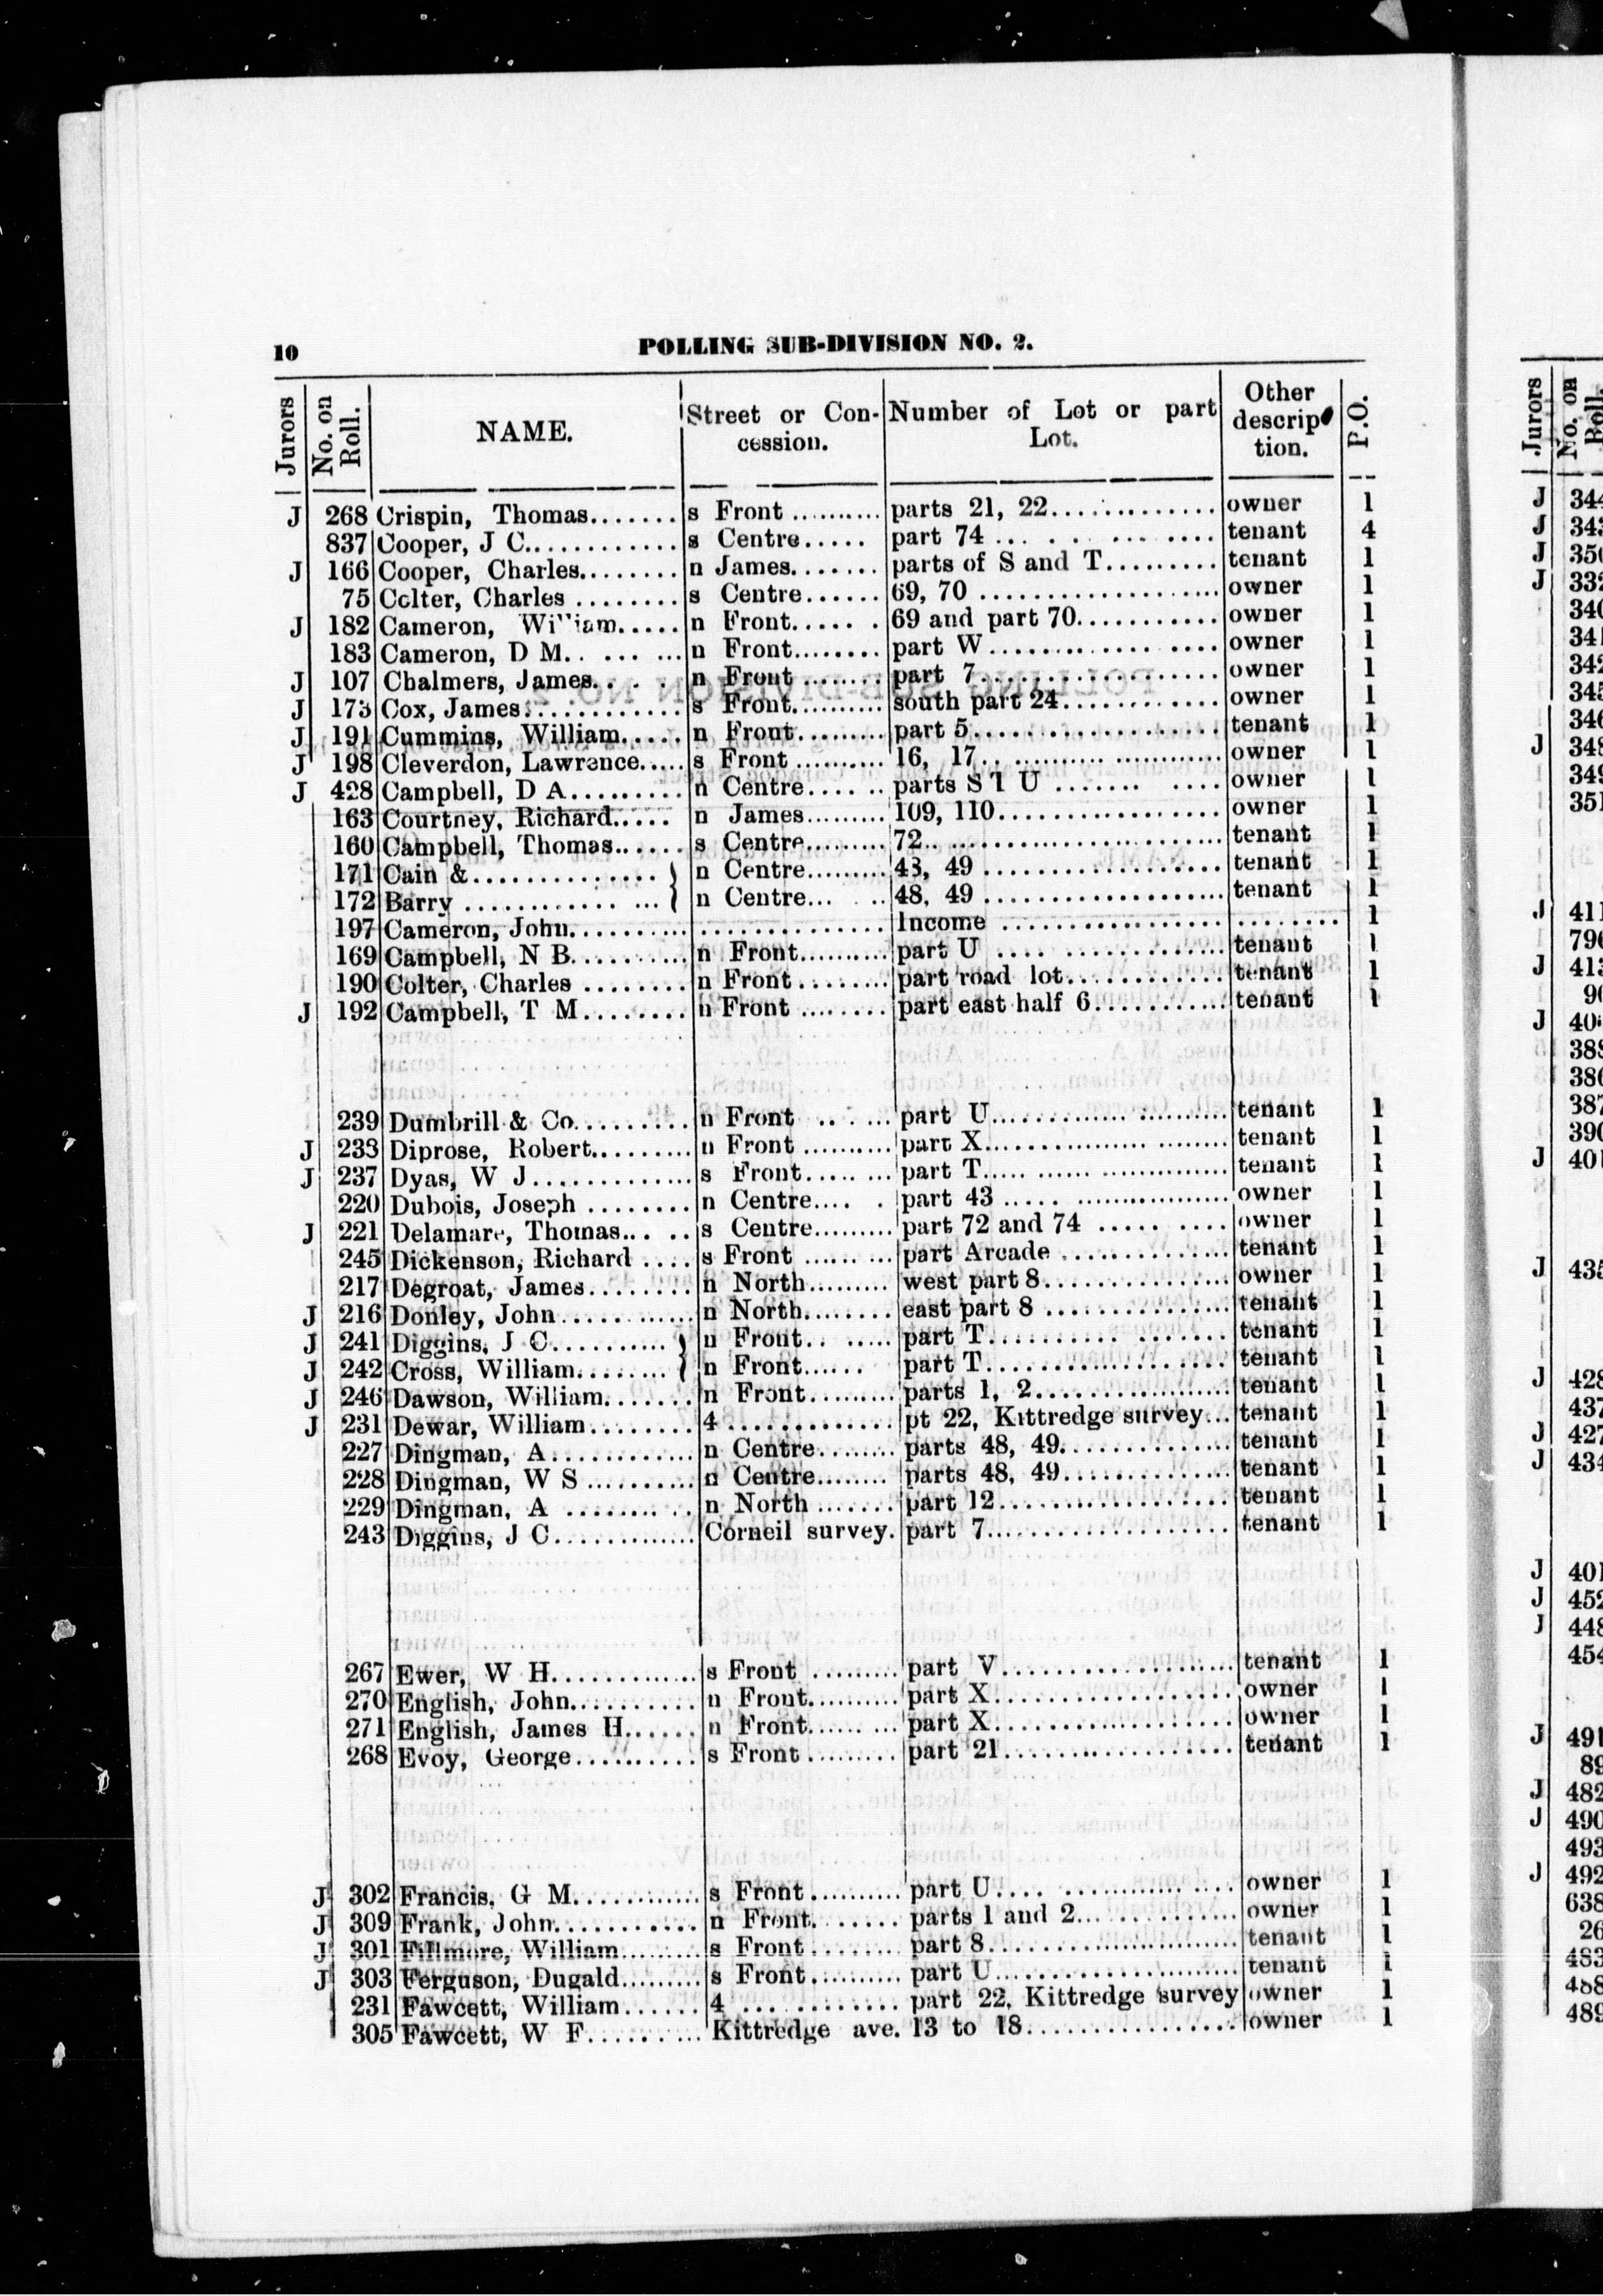 10 POLLING SUB-DIVISION NO. 2.
Jurors No. on Roll. NAME. Street or Concession. Number of Lot or part Lot. Other description. P.O.
J 268 Crispin, Thomas....... s Front .......... parts 21, 22.............. owner 1
837 Cooper, J C............ s Centre..... part 74 .............. tenant 4
J 166 Cooper, Charles........ n James....... parts of S and T......... tenant 1
75 Cclter, Charles ......... s Centre...... 69, 70 .................... owner 1
J 182 Cameron, William..... n Front...... 69 and part 70........... owner 1
183 Cameron, D M.......... n Front........ part W.................... owner 1
J 107 Chalmers, James..... n Front ........ part 7.................... owner 1
J 173 Cox, James............. s Front.......... south part 24............ owner 1
J 191 Cummins, William..... n Front......... part 5.................... tenant 1
J 198 Cleverdon, Lawrence..... s Front .......... 16, 17.................... owner 1
J 428 Campbell, D A.......... n Centre...... parts S T U ........... owner 1
163 Courtney, Richard..... n James......... 109, 110.................. owner 1
160 Campbell, Thomas...... s Centre......... 72........................ tenant 1
171 Cain &............... } n Centre......... 48, 49 ................... tenant 1
172 Barry ............... { n Centre..... 48, 49 ................... tenant 1
197 Cameron, John........... ............... Income ................... ......... 1
169 Campbell, N B.......... n Front.......... part U .................. tenant 1
190 Colter, Charles ........ n Front......... part road lot............. tenant 1
J 192 Campbell, T M........ n Front ......... part east half 6........... tenant 1
239 Dumbrill & Co.......... n Front ...... part U.................... tenant 1
J 233 Diprose, Robert......... n Front .......... part X.................... tenant 1
J 237 Dyas, W J............. s Front......... part T.................... tenant 1
220 Dubois, Joseph ........ n Centre..... part 43 ................. owner 1
J 221 Delamare, Thomas..... s Centre......... part 72 and 74 .......... owner 1
245 Dickenson, Richard .... s Front ......... part Arcade .............. tenant 1
217 Degroat, James......... n North......... west part 8................ owner 1
J 216 Donley, John............ n North........ east part 8 ............... tenant 1
J 241 Diggins, J C........... } n Front....... part T.................... tenant 1
J 242 Cross, William........ { n Front...... part T.................... tenant 1
J 246 Dawson, William....... n Front......... parts 1, 2................. tenant 1
J 231 Dewar, William......... 4 .............. pt 22, Kittredge survey... tenant 1
227 Dingman, A............ n Centre........ parts 48, 49.............. tenant 1
228 Dingman, W S .......... n Centre........ parts 48, 49.............. tenant 1
229 Dingman, A .......... n North ....... part 12................... tenant 1
243 Diggins, J C............. Corneil survey. part 7.................... tenant 1
267 Ewer, W H............. s Front ......... part V.................... tenant 1
270 English, John........... n Front.......... part X.................... owner 1
271 English, James H...... n Front......... part X.................... owner 1
268 Evoy, George........... s Front ......... part 21................... tenant 1
J 302 Francis, G M............ s Front.......... part U................... owner 1
J 309 Frank, John............ n Front........ parts 1 and 2............. owner 1
J 301 Fillmore, William......... s Front ......... part 8.................... tenant 1
J 303 Ferguson, Dugald......... s Front.......... part U.................... tenant 1
231 Fawcett, William...... 4 ............. part 22, Kittredge survey owner 1
305 Fawcett, W F.......... Kittredge ave. 13 to 18.................. owner 1
Jurors No. on Roll.